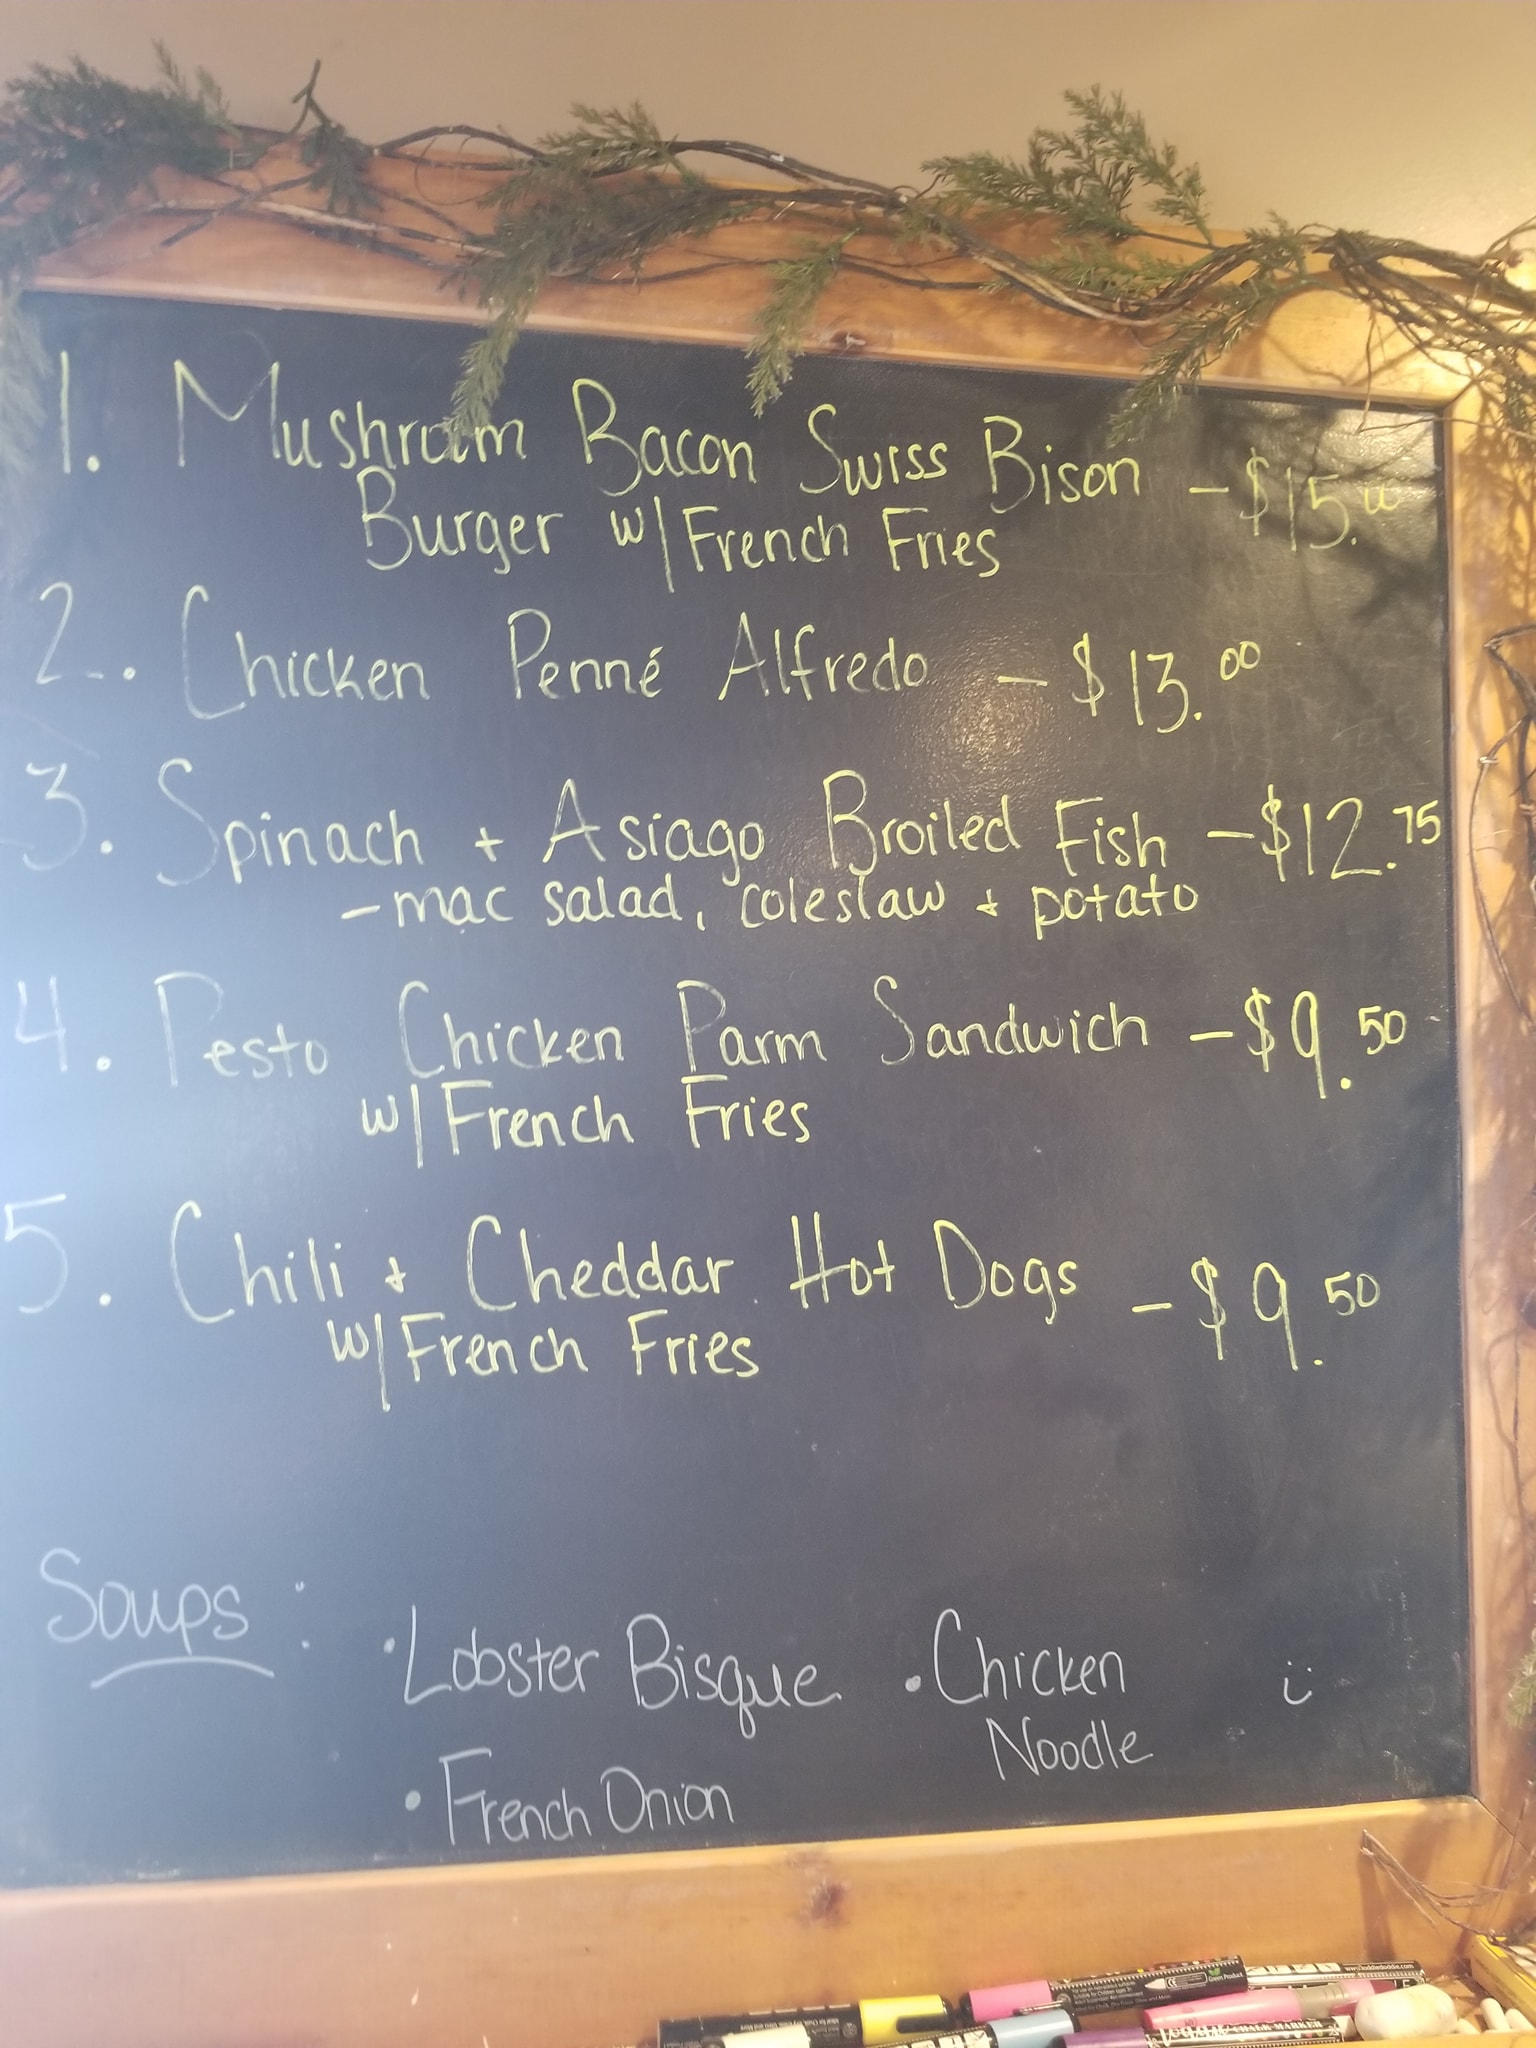 1. Mushroom Bacon Swiss Bison - $15.00
Burger w/ French Fries
2. Chicken Penné Alfredo - $13.00
3. Spinach + Asiago Broiled Fish - $12.75
- mac salad, coleslaw + potato
4. Pesto Chicken Parm Sandwich - $9.50
w/ French Fries
5. Chili + Cheddar Hot Dogs - $9.50
w/ French Fries
Soups:
• Lobster Bisque • Chicken
Noodle
• French Onion
Green Product
CHALK MARKER